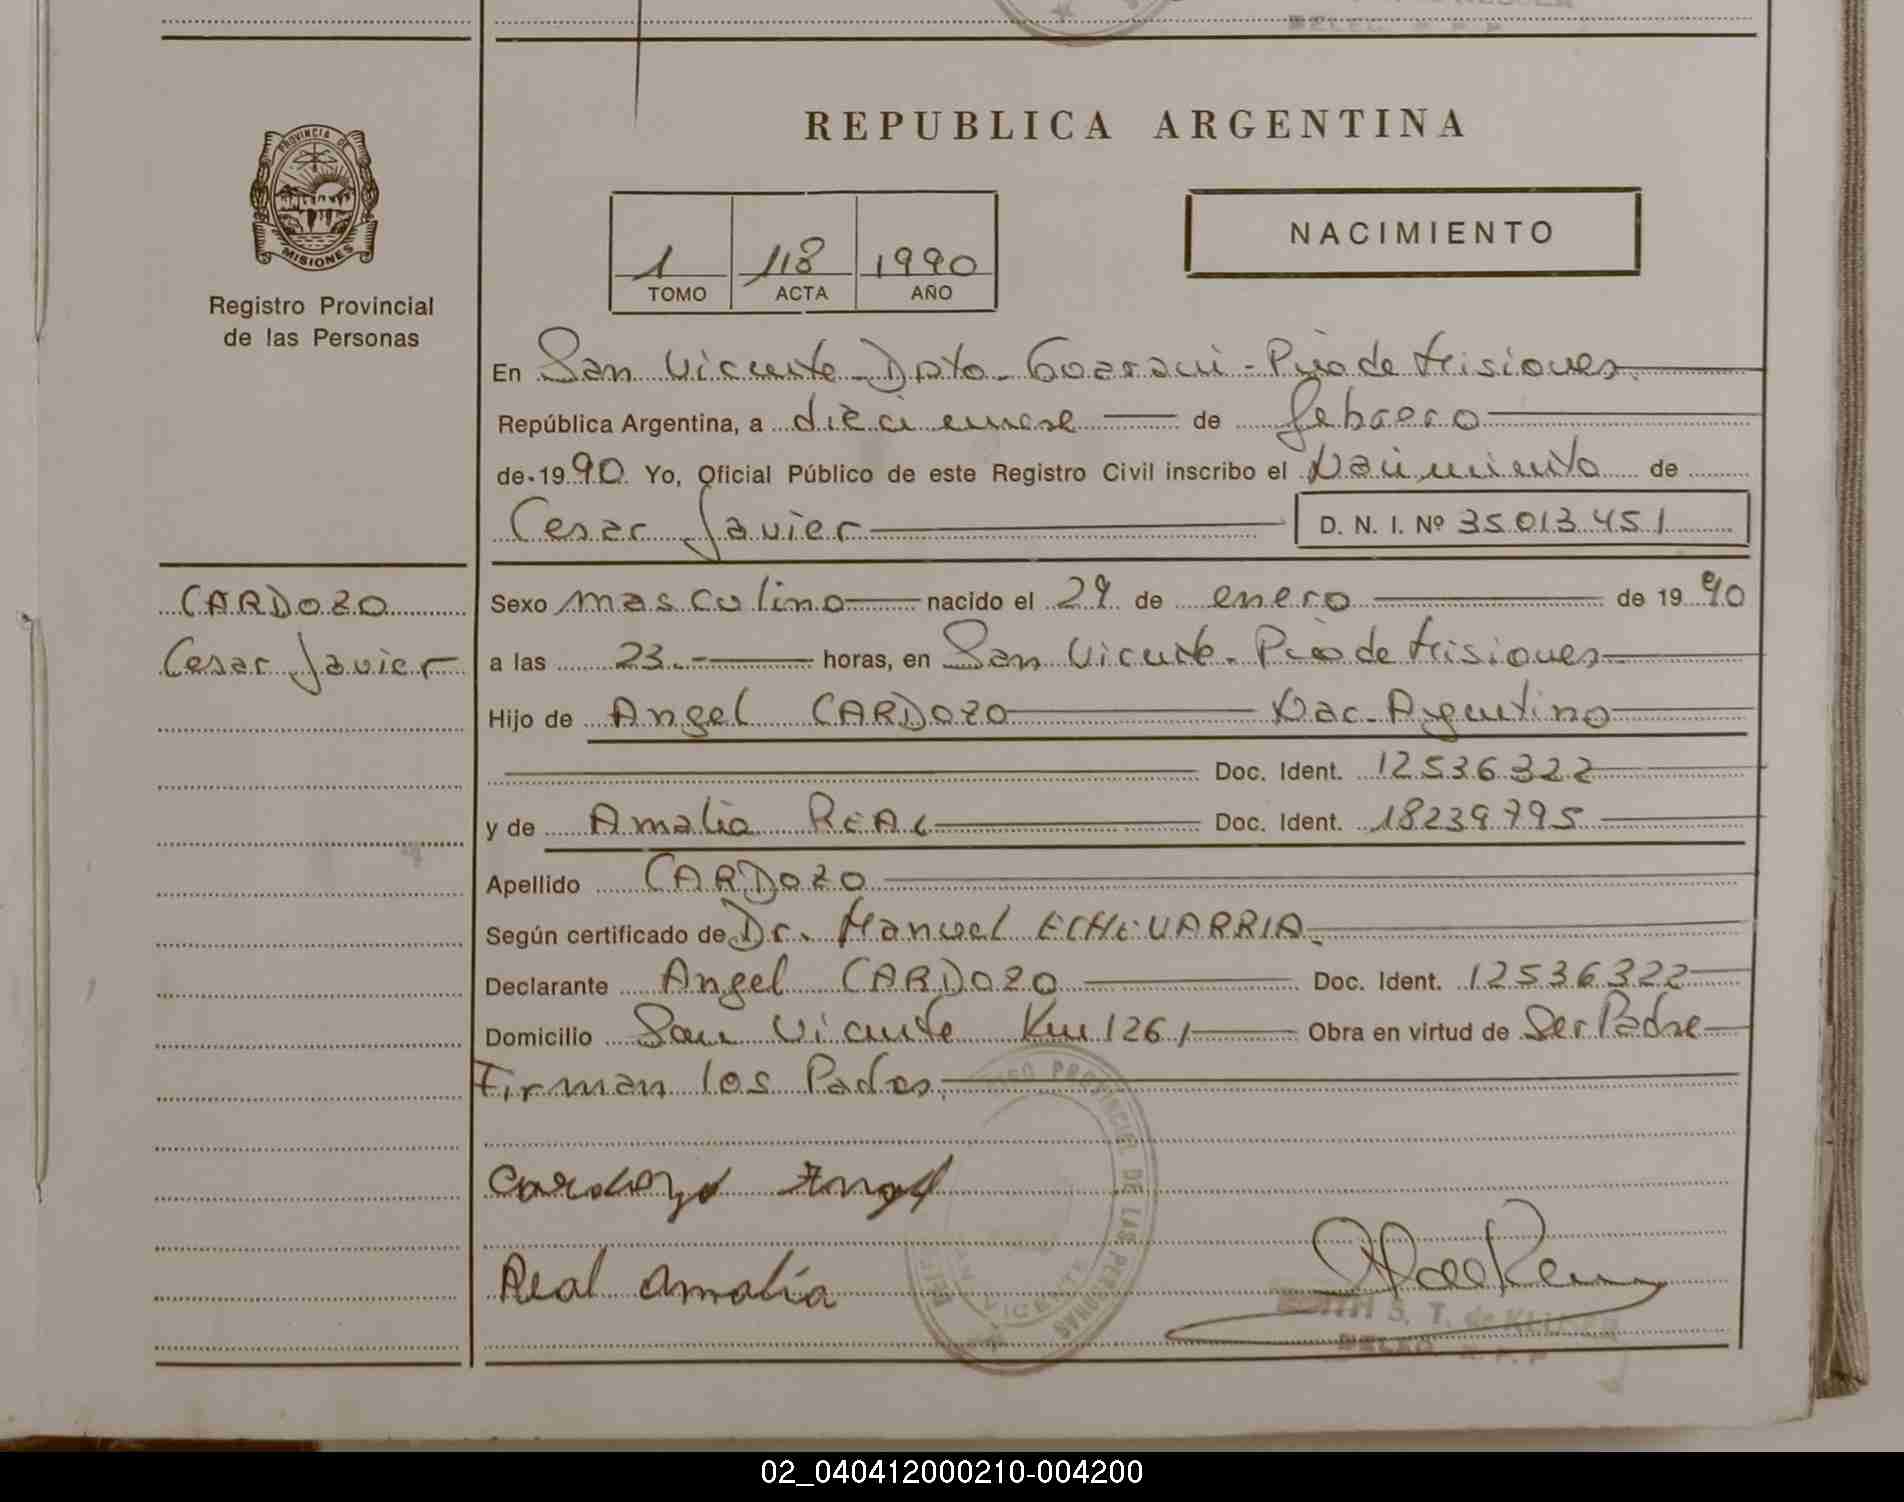 REPUBLICA ARGENTINA
PROVINCIA DE
MISIONES
Registro Provincial
de las Personas
NACIMIENTO
1 118 1990
TOMO ACTA AÑO
En San Vicente - Dpto - Guarani - Pcia de Misiones
República Argentina, a diecinueve de febrero
de 1990 Yo, Oficial Público de este Registro Civil inscribo el Nacimiento de
Cesar Javier D. N. I. Nº 35013451
CARDOZO
Cesar Javier
Sexo masculino nacido el 29 de enero de 1990
a las 23.- horas, en San Vicente - Pcia de Misiones
Hijo de Angel CARDOZO Nac. Argentino
Doc. Ident. 12536322
y de Amalia REAL Doc. Ident. 18239795
Apellido CARDOZO
Según certificado de Dr. Manuel ECHEVARRIA.
Declarante Angel CARDOZO Doc. Ident. 12536322
Domicilio San Vicente Km 1261 Obra en virtud de Ser Padre
Firman los Padres.
Cardozo Angel
Real Amalia
PROVINCIAL DE LAS PERSONAS
SAN VICENTE
S. T. de
02_040412000210-004200